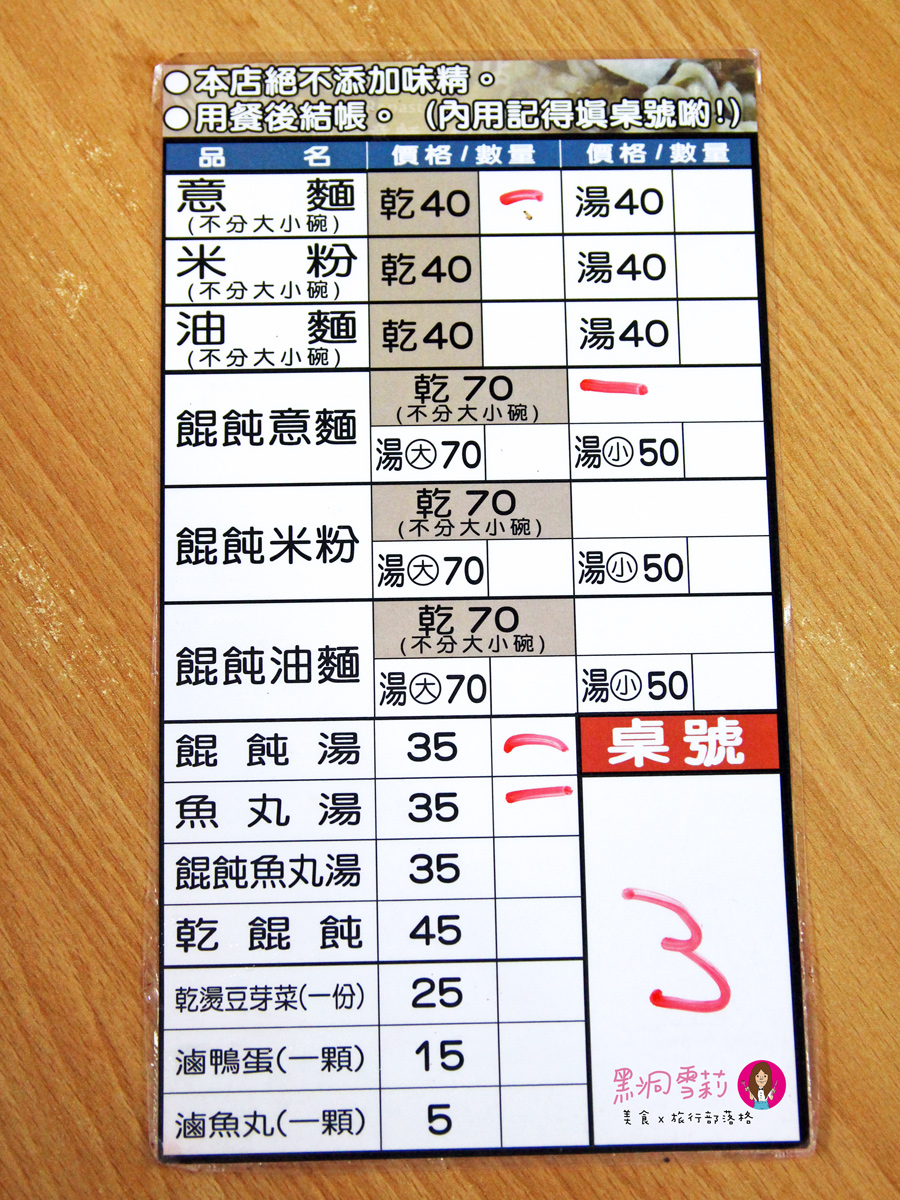 ●本店絕不添加味精。
●用餐後結帳。（內用記得填桌號喲!）
品 名 價格/數量 價格/數量
意 麵 乾40 一 湯40
(不分大小碗)
米 粉 乾40 湯40
(不分大小碗)
油 麵 乾40 湯40
(不分大小碗)
餛飩意麵 乾 70 一
(不分大小碗)
湯大70 湯小50
餛飩米粉 乾 70
(不分大小碗)
湯大70 湯小50
餛飩油麵 乾 70
(不分大小碗)
湯大70 湯小50
餛飩湯 35 一
魚丸湯 35 一
餛飩魚丸湯 35
乾餛飩 45
乾燙豆芽菜(一份) 25
滷鴨蛋(一顆) 15
滷魚丸(一顆) 5
桌號
3
黑洞雪莉
美食x旅行部落格